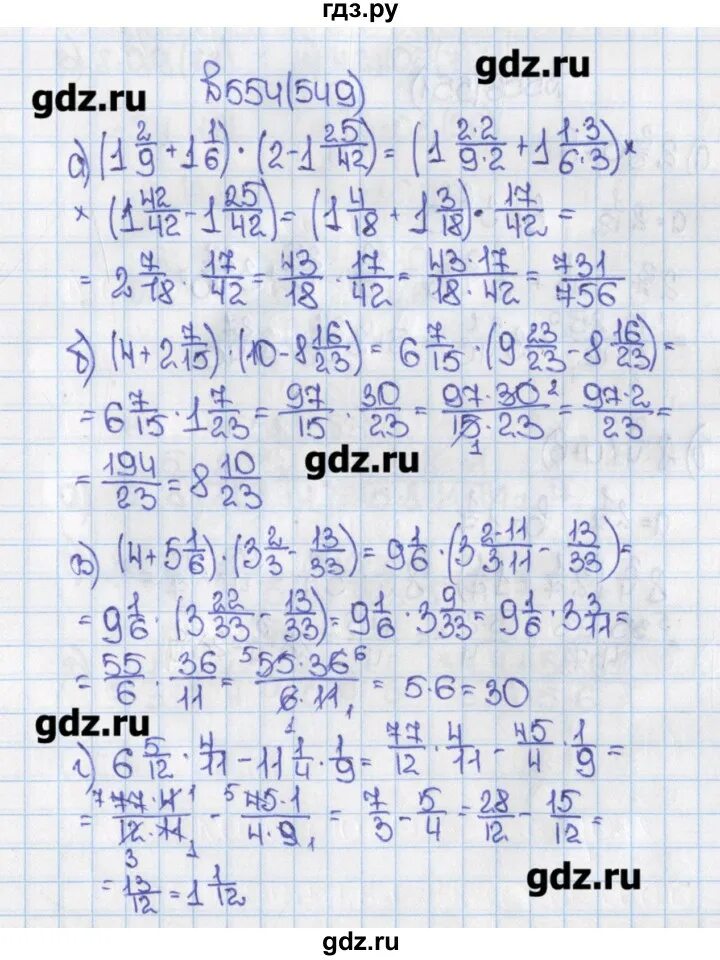 гдз.ру
gdz.ru
gdz.ru
№554(549)
а) (1 2/9 + 1 1/6) · (2 - 1 25/42) = (1 2·2/9·2 + 1 1·3/6·3) ×
× (1 42/42 - 1 25/42) = (1 4/18 + 1 3/18) · 17/42 =
= 2 7/18 · 17/42 = 43/18 · 17/42 = 43·17/18·42 = 731/756
б) (4 + 2 7/15) · (10 - 8 16/23) = 6 7/15 · (9 23/23 - 8 16/23) =
= 6 7/15 · 1 7/23 = 97/15 · 30/23 = 97·30 2/15 1·23 = 97·2/23 =
= 194/23 = 8 10/23
gdz.ru
в) (4 + 5 1/6) · (3 2/3 - 13/33) = 9 1/6 · (3 2·11/3·11 - 13/33) =
= 9 1/6 · (3 22/33 - 13/33) = 9 1/6 · 3 9/33 = 9 1/6 · 3 3/11 =
= 55/6 · 36/11 = 5 55·36 6/1 6·11 1 = 5·6 = 30
gdz.ru
г) 6 5/12 · 4/11 - 11 1/4 · 1/9 = 77/12 · 4/11 - 45/4 · 1/9 =
= 7 77·4 1/3 12·11 1 - 5 45·1/4·9 1 = 7/3 - 5/4 = 28/12 - 15/12 =
= 13/12 = 1 1/12
gdz.ru
gdz.ru